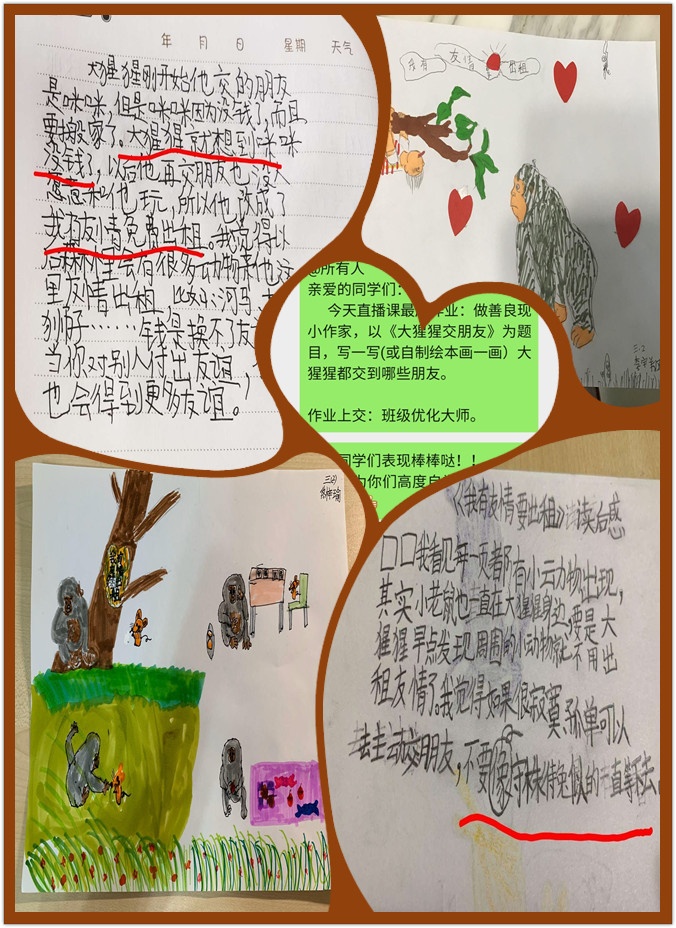 年 月 日 星期 天气
大猩猩刚开始他交的朋友
是咪咪,但是咪咪因为没钱了,而且
要搬家了。大猩猩就想到咪咪
没钱了,以后他再交朋友也没人
愿意和他玩,所以他改成了
我有友情免费出租。我觉得以
后森林里会有很多动物来他这
里友情出租,比如:河马、大
别好……钱是换不了友
当你对别人付出友谊,
也会得到更多友谊。
我有 友情 出租
三.2
@所有人
亲爱的同学们:
今天直播课最 业:做善良现
小作家,以《大猩猩交朋友》为题
目,写一写(或自制绘本画一画)大
猩猩都交到哪些朋友。
作业上交:班级优化大师。
同学们表现棒棒哒!!
为你们高度自
三(2)
《我有友情要出租》读后感
口口我看见每一页都有小动物出现,
其实小老鼠也一直在大猩猩身边,要是大
猩猩早点发现周围的小动物就不用出
租友情了。我觉得如果很寂寞、孤单可以
去主动交朋友,不要像守株待兔似的一直等下去。